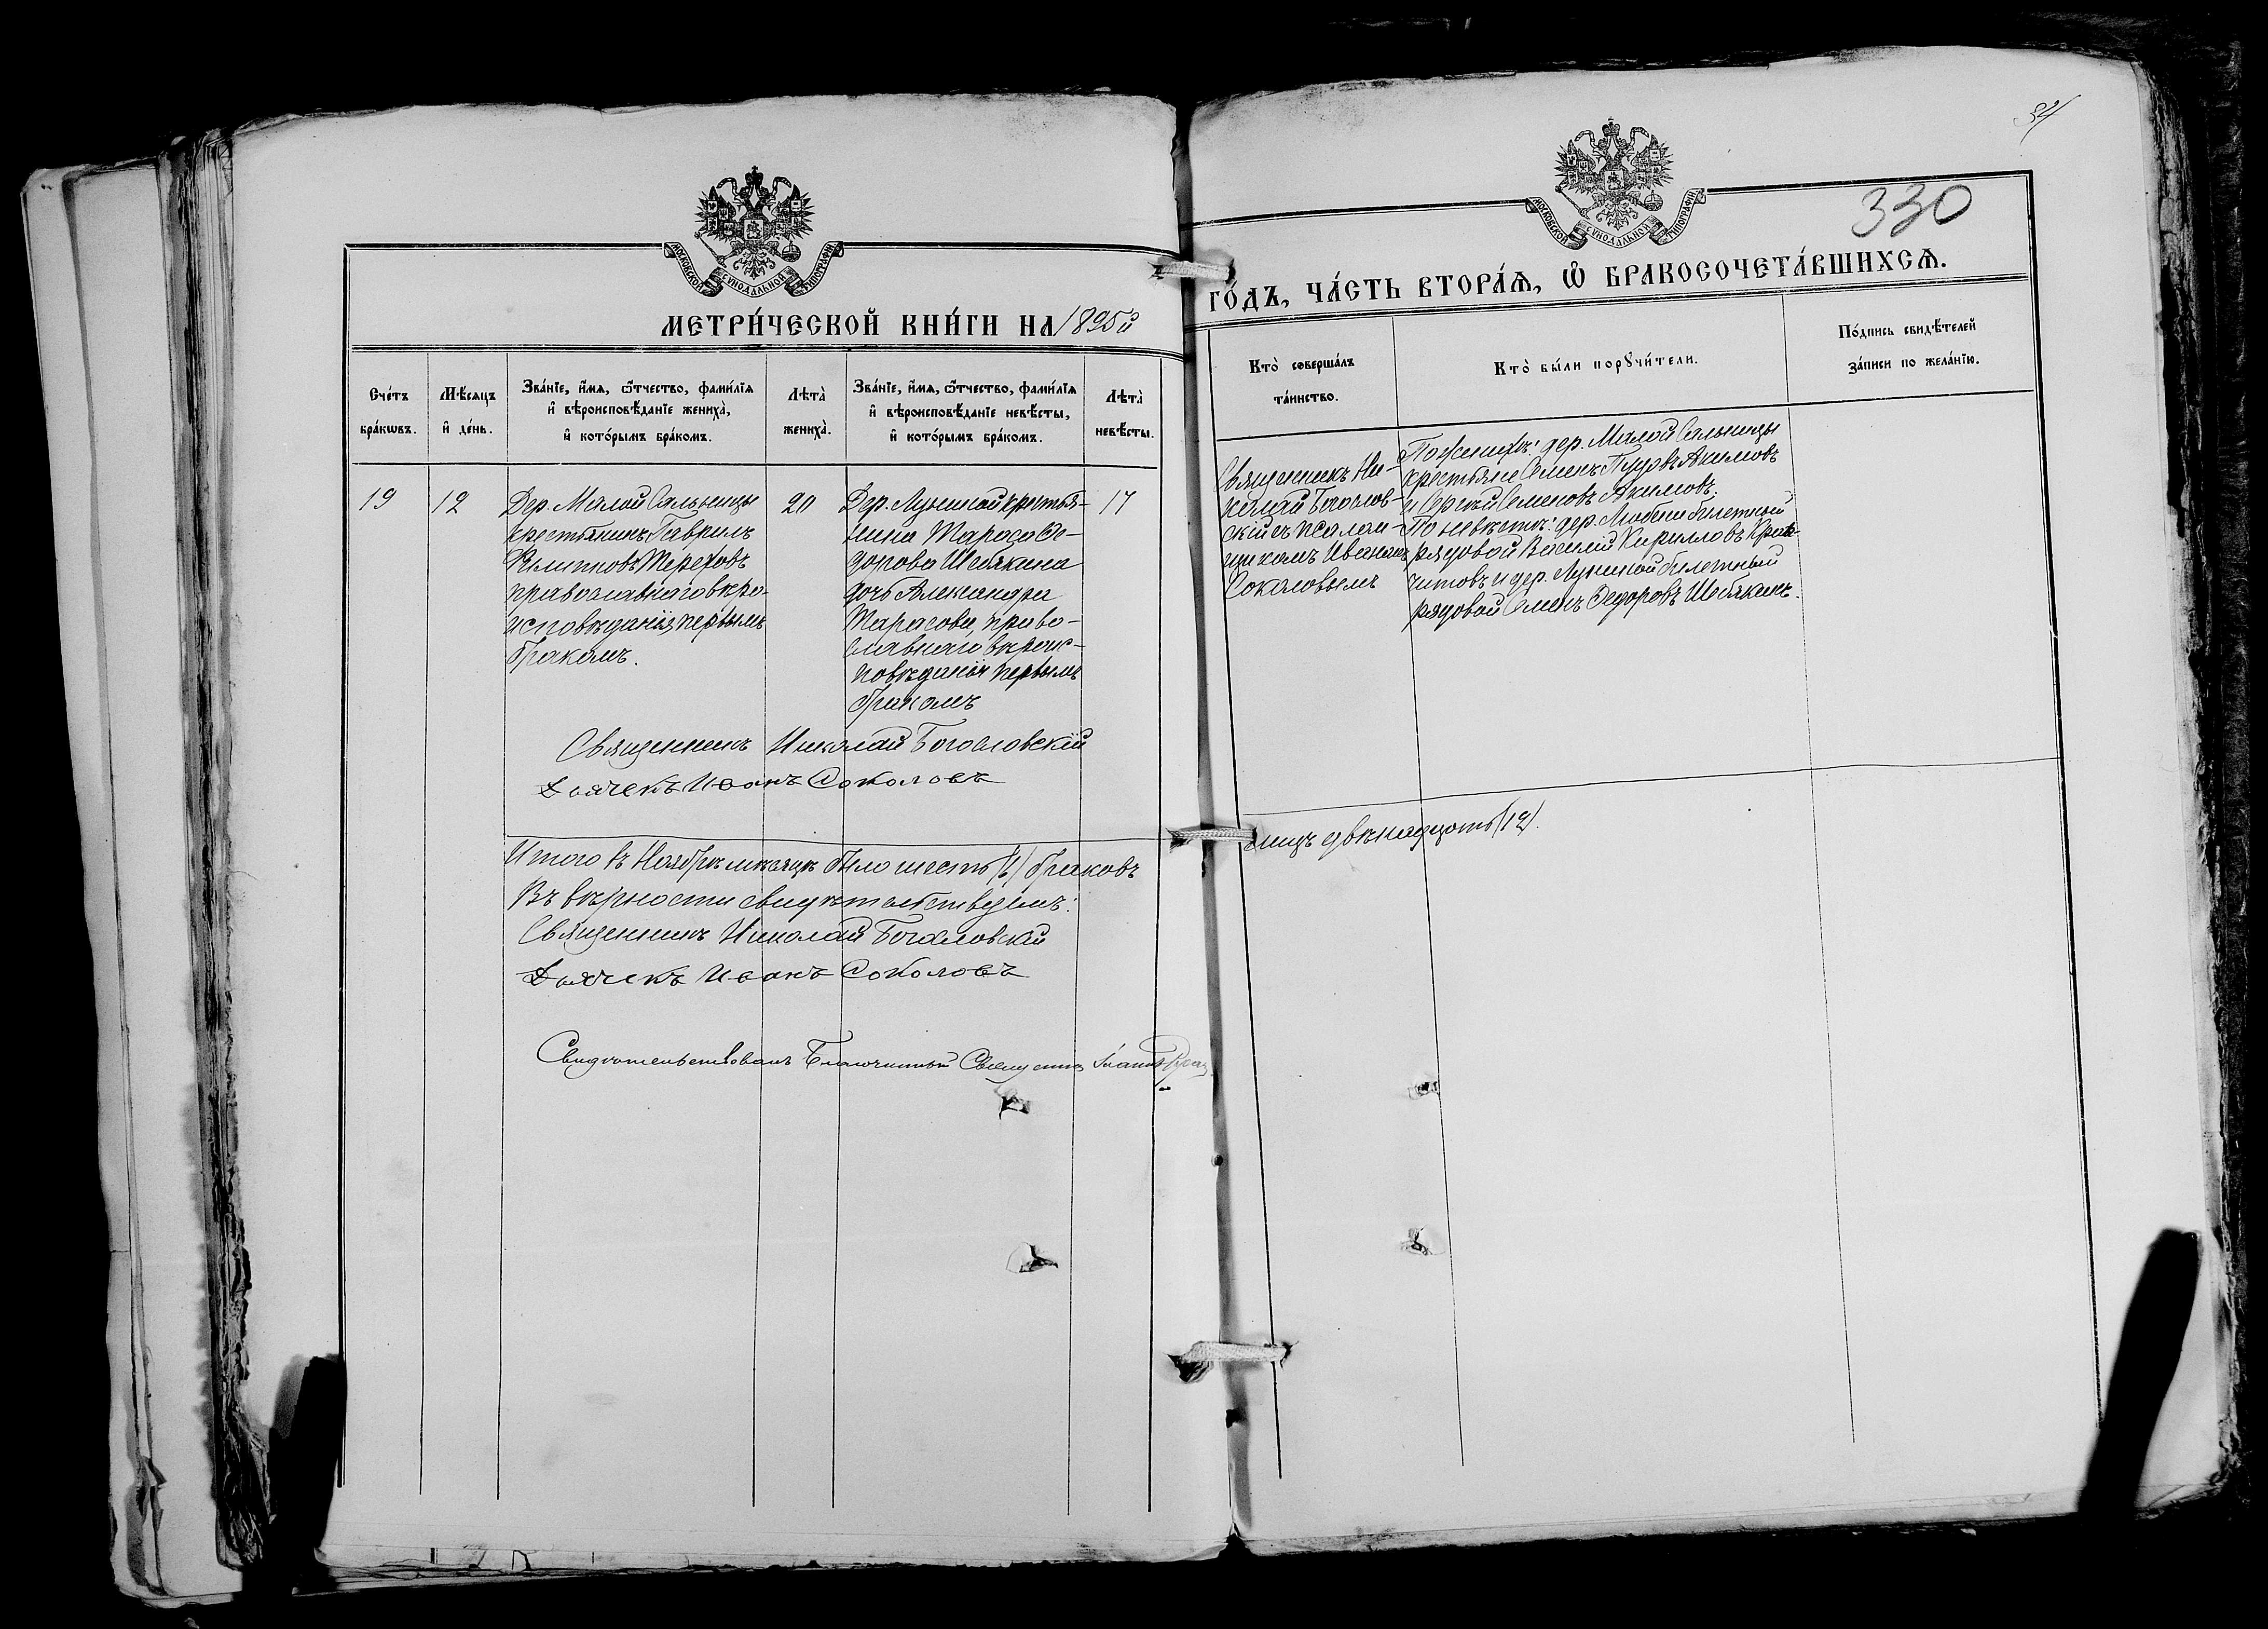 МОСКОВСКОЙ СУНОДАЛЬНОЙ ТИПОГРАФІИ
МЕТРИ́ЧЕСКОЙ КНИ́ГИ НА 1895й
Сче́тъ бра́кωвъ.
Мѣ́сяцъ и҆ де́нь.
Зва́нїе, и҆́мя, ѻ҆́тчество, фами́лїя
и҆ вѣроисповѣ́данїе жениха̀,
и҆ кото́рымъ бра́комъ.
Лѣта̀ жениха̀.
Зва́нїе, и҆́мя, ѻ҆́тчество, фами́лїя
и҆ вѣроисповѣ́данїе невѣ́сты,
и҆ кото́рымъ бра́комъ.
Лѣта̀ невѣ́сты.
19
12
Дер. Малой Сальницы
крестьянинъ Гаврилъ
Филиповъ Тереховъ
православнаго вѣро-
исповѣданія, первымъ
бракомъ.
20
Дер. Луниной крестья-
нина Тараса Ѳе-
дорова Шебякина
дочь Александра
Тарасова, право-
славнаго вѣроис-
повѣданія первымъ
бракомъ
17
Священникъ Николай Богословскій
Дьячекъ Иванъ Соколовъ
Итого въ Ноябрѣ мѣсяцѣ было шесть /6/ браковъ
Въ вѣрности свидѣтельствуемъ:
Священникъ Николай Богословскій
Дьячекъ Иванъ Соколовъ
Свидѣтельствовалъ Благочинный Священникъ
34
330
МОСКОВСКОЙ СУНОДАЛЬНОЙ ТИПОГРАФІИ
ГО́ДЪ, ЧА́СТЬ ВТОРА́Я, Ѡ҆ БРАКОСОЧЕТА́ВШИХСЯ.
Кто̀ соверша́лъ
та́инство.
Кто̀ бы́ли порꙋчи́тели.
По́дпись свидѣ́телей
за́писи по жела́нїю.
Священникъ Ни-
колай Богослов-
скій съ псалом-
щикомъ Иваномъ
Соколовымъ
По женихѣ: дер. Малой Сальницы
крестьяне Семенъ Пудовъ Акимовъ
и Сергѣй Семеновъ Акимовъ.
По невѣстѣ: дер. билетный
рядовой Василій Кирилловъ
и дер. Луниной билетный
рядовой Семенъ Ѳедоровъ Шебякинъ.
лицъ двѣнадцать /12/.